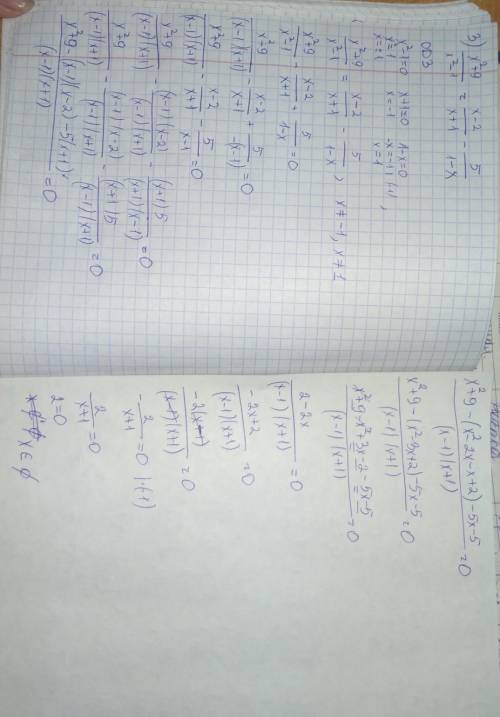 3) x²+9/x²-1 = x-2/x+1 - 5/1-x
ОДЗ
x²-1=0 x+1=0 1-x=0
x=1 x=-1 -x=-1 |(-1)
x=-1 x=1
x²+9/x²-1 = x-2/x+1 - 5/1-x, x≠-1, x≠1
x²+9/x²-1 - x-2/x+1 + 5/1-x = 0
x²+9/(x-1)(x+1) - x-2/x+1 + 5/-(x-1) = 0
x²+9/(x-1)(x+1) - x-2/x+1 - 5/x-1 = 0
x²+9/(x-1)(x+1) - (x-1)(x-2)/(x-1)(x+1) - (x+1)5/(x+1)(x-1) = 0
x²+9/(x-1)(x+1) - (x-1)(x-2)/(x-1)(x+1) - (x+1)5/(x-1)(x+1) = 0
x²+9-(x-1)(x-2)-5(x+1)/(x-1)(x+1) = 0
x²+9-(x²-2x-x+2)-5x-5/(x-1)(x+1) = 0
x²+9-(x²-3x+2)-5x-5/(x-1)(x+1) = 0
x²+9-x²+3x-2-5x-5/(x-1)(x+1) = 0
2-2x/(x-1)(x+1) = 0
-2x+2/(x-1)(x+1) = 0
-2(x-1)/(x-1)(x+1) = 0
-2/x+1 = 0 |·(-1)
2/x+1 = 0
2=0
x∈∅